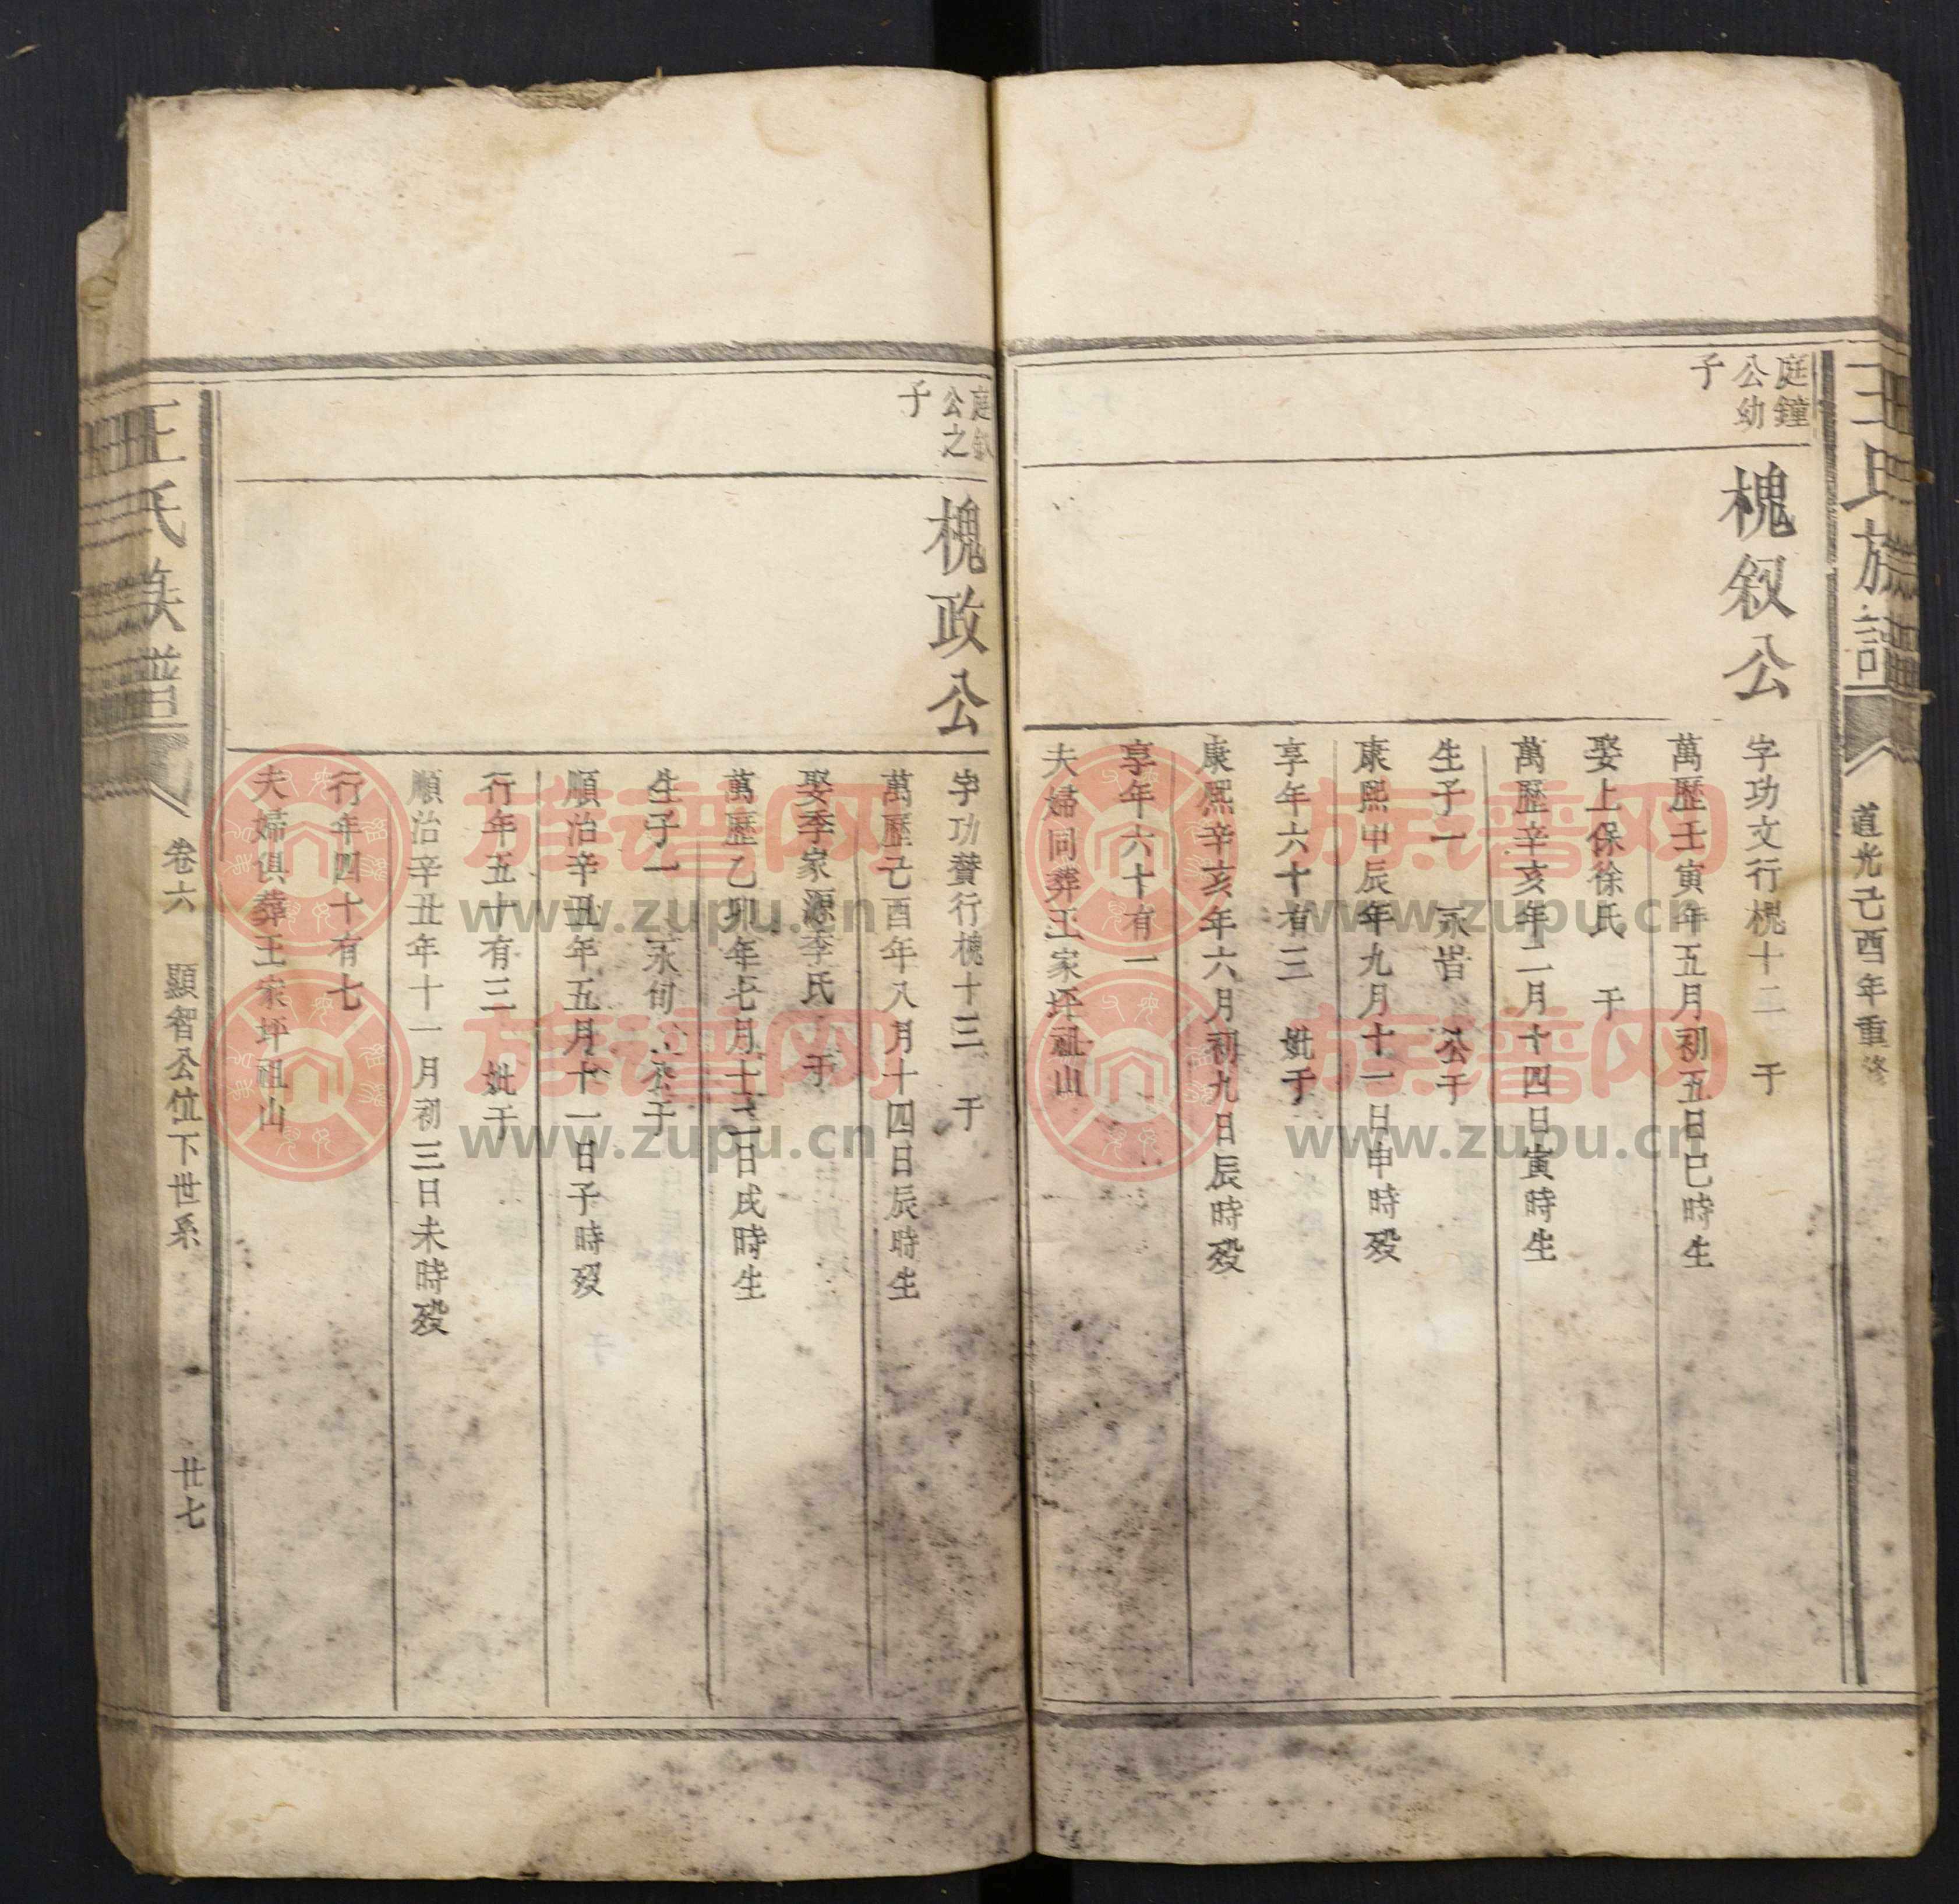 王氏族譜
道光己酉年重修
庭鐘
公幼
子
槐叙公
字功文行槐十二　于
萬歷壬寅年五月初五日巳時生
娶上保徐氏　于
萬歷辛亥年二月十四日寅時生
生子一　永　公于
康熙甲辰年九月十一日申時殁
享年六十有三　妣于
康熙辛亥年六月初九日辰時殁
享年六十有一
夫婦同葬王家坪祖山
庭
公之
子
槐政公
字功贊行槐十三　于
萬歷己酉年八月十四日辰時生
娶李家源李氏　于
萬歷乙卯年七月十二日戌時生
生子一　永旬　公于
順治辛丑年五月十一日子時殁
行年五十有三　妣于
順治辛丑年十一月初三日未時殁
行年四十有七
夫婦俱葬王家坪祖山
王氏族譜
卷六　顯智公位下世系　廿七
族谱网
www.zupu.cn
族谱网
www.zupu.cn
族谱网
www.zupu.cn
族谱网
www.zupu.cn